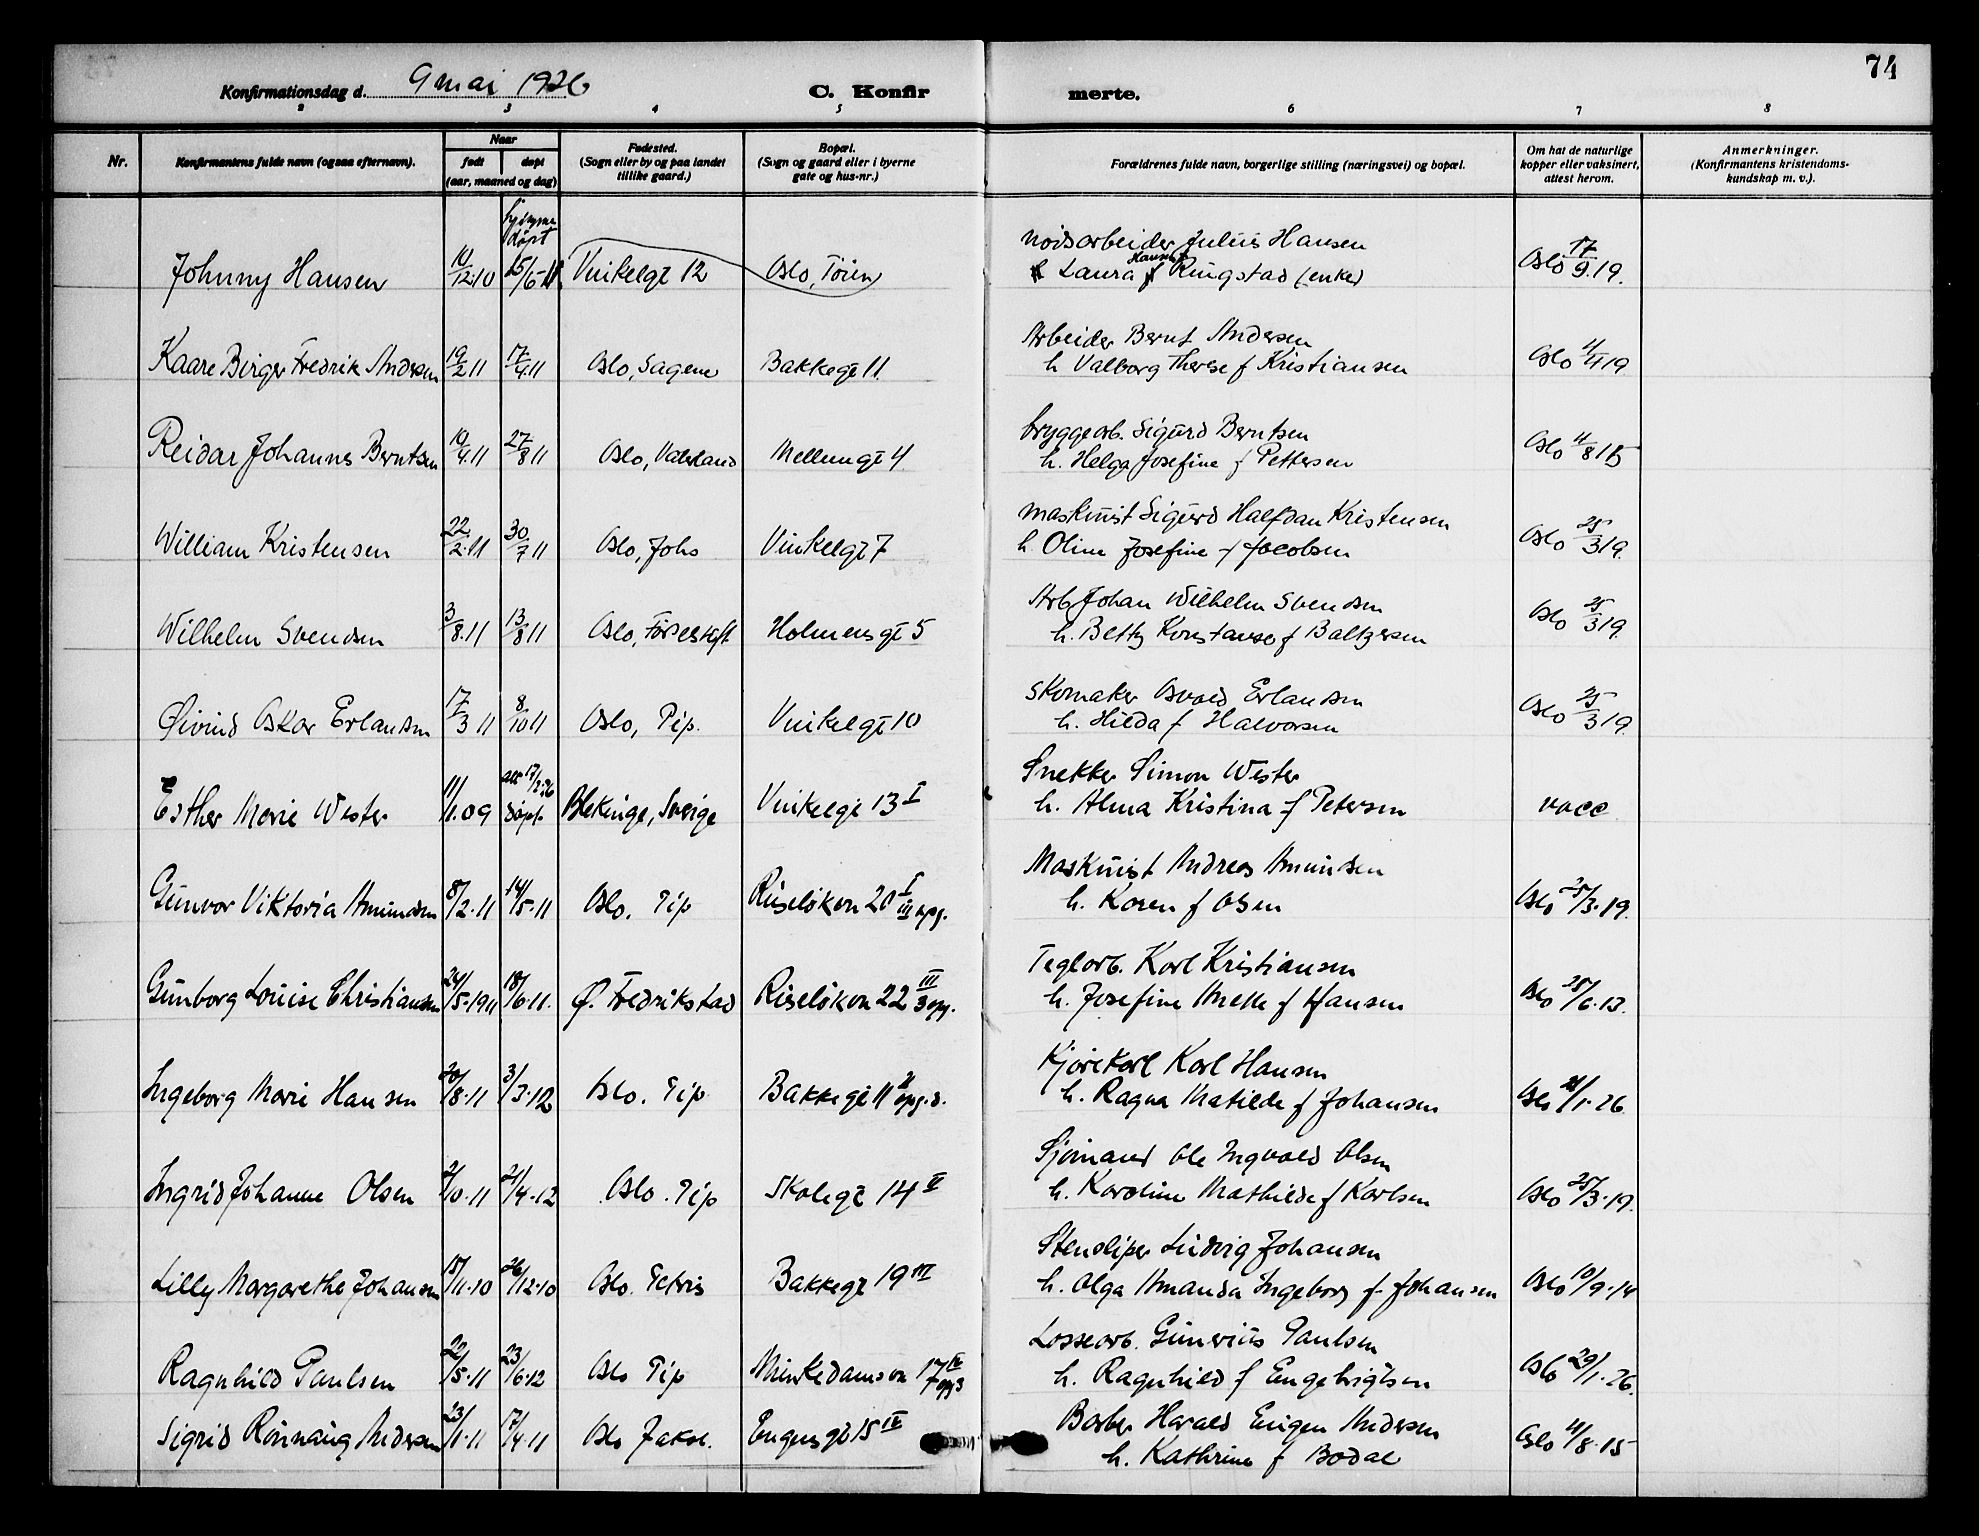 74
Konfirmationsdag d. 9 mai 1926 C. Konfir merte.
2 3 4 5 6 7 8
Nr. Konfirmantens fulde navn (ogsaa efternavn). Naar født døpt (aar, maaned og dag) Fødested. (Sogn eller by og paa landet tillike gaard.) Bopæl. (Sogn og gaard eller i byerne gate og hus-nr.) Forældrenes fulde navn, borgerlige stilling (næringsvei) og bopæl. Om hat de naturlige kopper eller vaksinert, attest herom. Anmerkninger. (Konfirmantens kristendomskundskap m. v.).
hjemme døpt
Johnny Hansen 10/12.10 15/6-11 Vinkelgt 12 Oslo, Tøien nødsarbeider Julius Hansen Oslo 17/9.19.
Laura Hansen f Ringstad (enke)
Kaare Birger Fredrik Andersen 19/2 11 17/4 11 Oslo, Sagene Bakkegt 11. Arbeider Bernt Andersen Oslo 11/4 19
h Valborg Therese f Kristiansen
Reidar Johannes Berntsen 10/4.11 27/8 11 Oslo, Vaterland Mellemgt 4 bryggearb. Sigurd Berntsen Oslo 11/8 15
h. Helga Josefine f Pettersen
William Kristensen 22/2.11 30/7 11 Oslo, Johs Vinkelgt 7 maskinist Sigurd Halfdan Kristensen Oslo 25/3 19.
h. Oline Josefine f Jacobsen
Wilhelm Svendsen 3/8.11 13/8 11 Oslo, Holmensgt 5 Arb Johan Wilhelm Svendsen Oslo 25/3 19.
h. Betty Konstanse f Baltzersen
Øivind Oskar Erlandsen 17/3 11 8/10 11 Oslo, Pip. Vinkelgt 10 skomaker Osvald Erlandsen Oslo 25/3 19.
h. Hilda f Halvorsen
Esther Marie Wester 11/1.09 døpt Blekinge, Sverige Vinkelgt 13 I Snekker Simon Wester vacc
h. Alma Kristina f Petersen
Gunvor Viktoria Amundsen 8/2.11 14/5.11 Oslo. Pip Ruseløkvn 20 I III opg. Maskinist Andreas Amundsen Oslo 25/3.19.
h. Karen f Olsen
Gunborg Louise Christiansen 24/5.1911 18/6.11. Ø. Fredrikstad Ruseløkvn 22 III 3 opg. Teglarb. Karl Kristiansen Oslo 28/6.13.
h. Josefine Anette f Hansen
Ingeborg Marie Hansen 20/8.11 3/3.12 Oslo. Pip Bakkegt 11 2 opg. d. Kjørekarl Karl Hansen Oslo 21/1.26
h. Ragna Matilde f Johansen
Ingrid Johanne Olsen 2/10.11 21/4.12 Oslo. Pip Skolegt 14 II Sjømand Ole Ingvald Olsen Oslo 25/3.19.
h. Karoline Mathilde f Karlsen
Lilly Margarethe Johansen 15/11.10 26/12.10 Oslo. Petris Bakkegt 19 III Stensliper Ludvig Johansen Oslo 10/9.14
h. Olga Amanda Ingeborg f. Johansen
Ragnhild Paulsen 22/5.11 23/6.12 Oslo Pip Munkedamsvn 17 Lossearb. Gunerius Paulsen Oslo 29/1.26.
h. Ragnhild f Engebrigtsen
Sigrid Rønnaug Andersen 23/1.11 17/4.11 Oslo Jakob. Engensgt 15 IV Barber Harald Eugen Andersen Oslo 11/8.15
h. Kathrine f Bodal